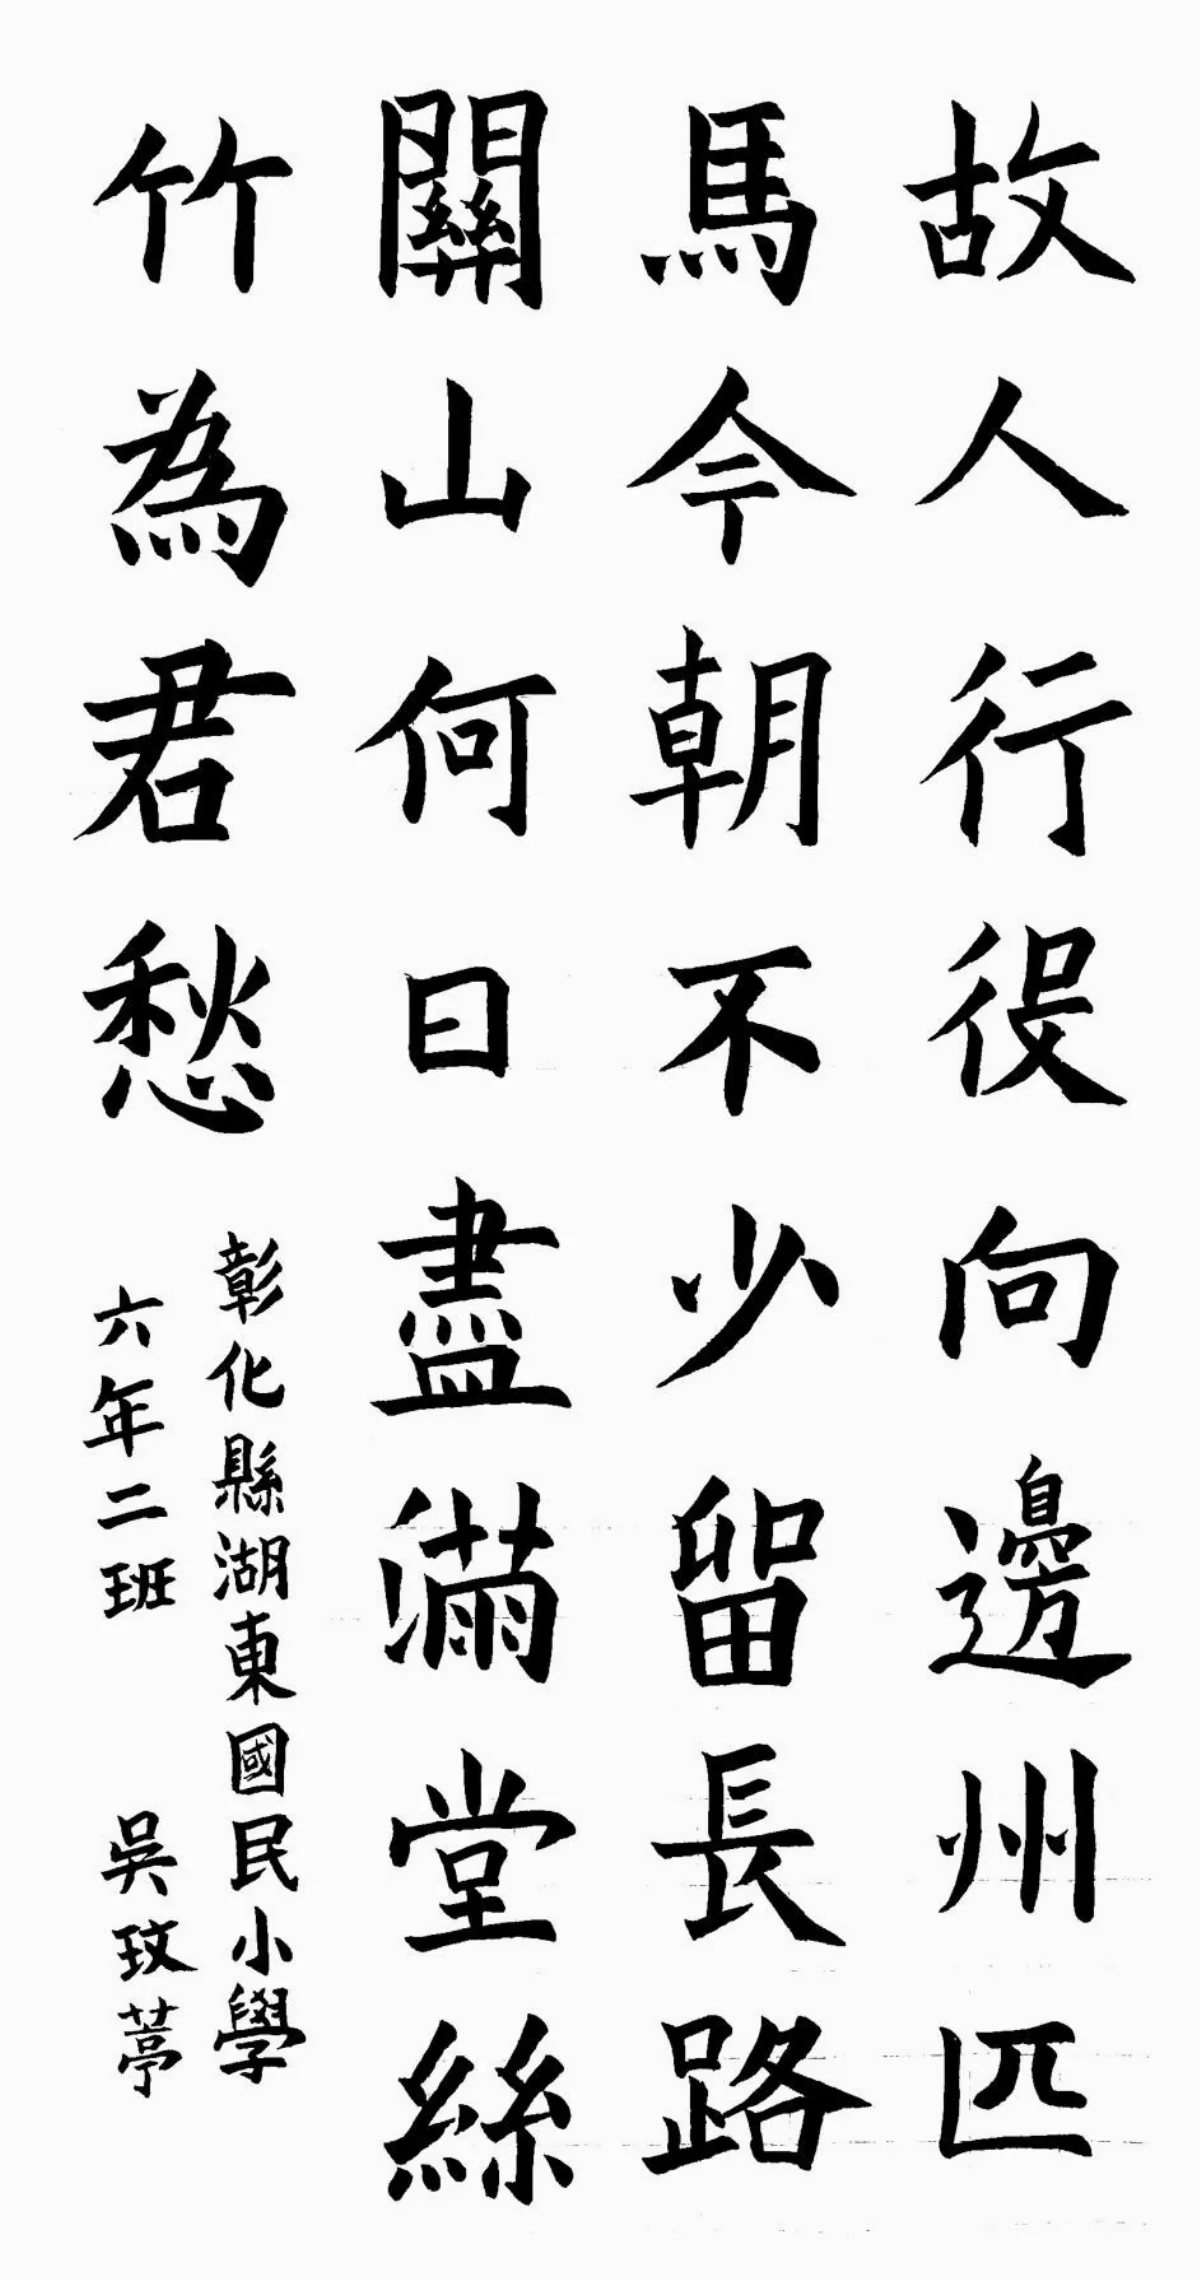 故人行役向邊州匹
馬今朝不少留長路
關山何日盡滿堂絲
竹為君愁
彰化縣湖東國民小學
六年二班 吳玟葶